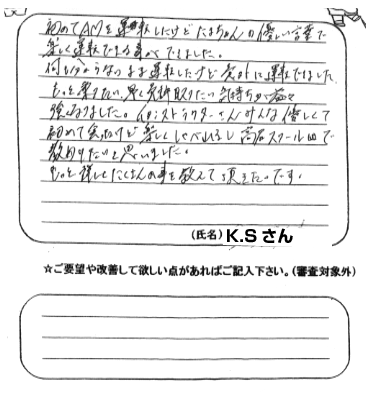 初めてAMを運転したけどたまちゃんの優しい言葉で
楽しく運転できる事ができました。
何も分からないまま運転したけど意外に運転できました
もっと乗りたい、早く免許取りたい気持ちが益々
強なりました。インストラクターさんみんな優しくて
初めて会ったけど楽しくしゃべれるし スクール で
教わりたいと思いました。
もっと詳しくたくさんの事を教えて頂きたいです。
(氏名) K.S さん
☆ご要望や改善して欲しい点があればご記入下さい。(審査対象外)